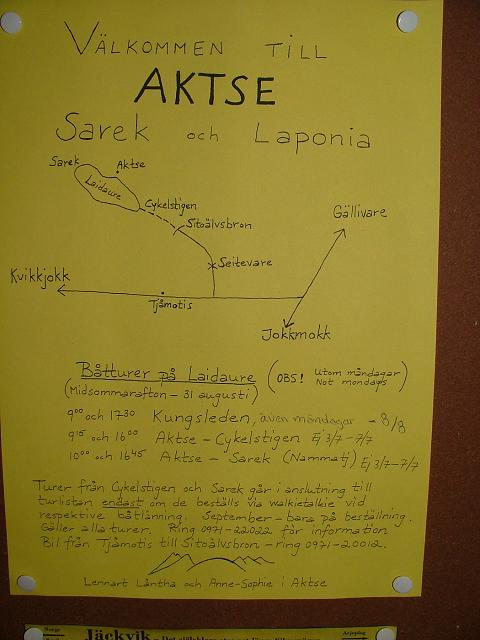 VÄLKOMMEN TILL
AKTSE
Sarek och Laponia
Sarek
Aktse
Laidaure
Cykelstigen
Sitoälvsbron
Gällivare
Seitevare
Kvikkjokk
Tjåmotis
Jokkmokk
Båtturer på Laidaure (OBS! Utom måndagar
Not mondays)
(Midsommarafton - 31 augusti)
9⁰⁰ och 17³⁰ Kungsleden, även måndagar - 8/8
9¹⁵ och 16⁰⁰ Aktse - Cykelstigen Ej 3/7-7/7
10⁰⁰ och 16⁴⁵ Aktse - Sarek (Nammatj) Ej 3/7-7/7
Turer från Cykelstigen och Sarek går i anslutning till
turlistan endast om de beställs via walkietalkie vid
respektive båtlänning. September - bara på beställning.
Gäller alla turer. Ring 0971-22022 för information
Bil från Tjåmotis till Sitoälvsbron - ring 0971-20012.
Lennart Låntha och Anne-Sophie i Aktse
Norge
Jäckvik
Arjeplog